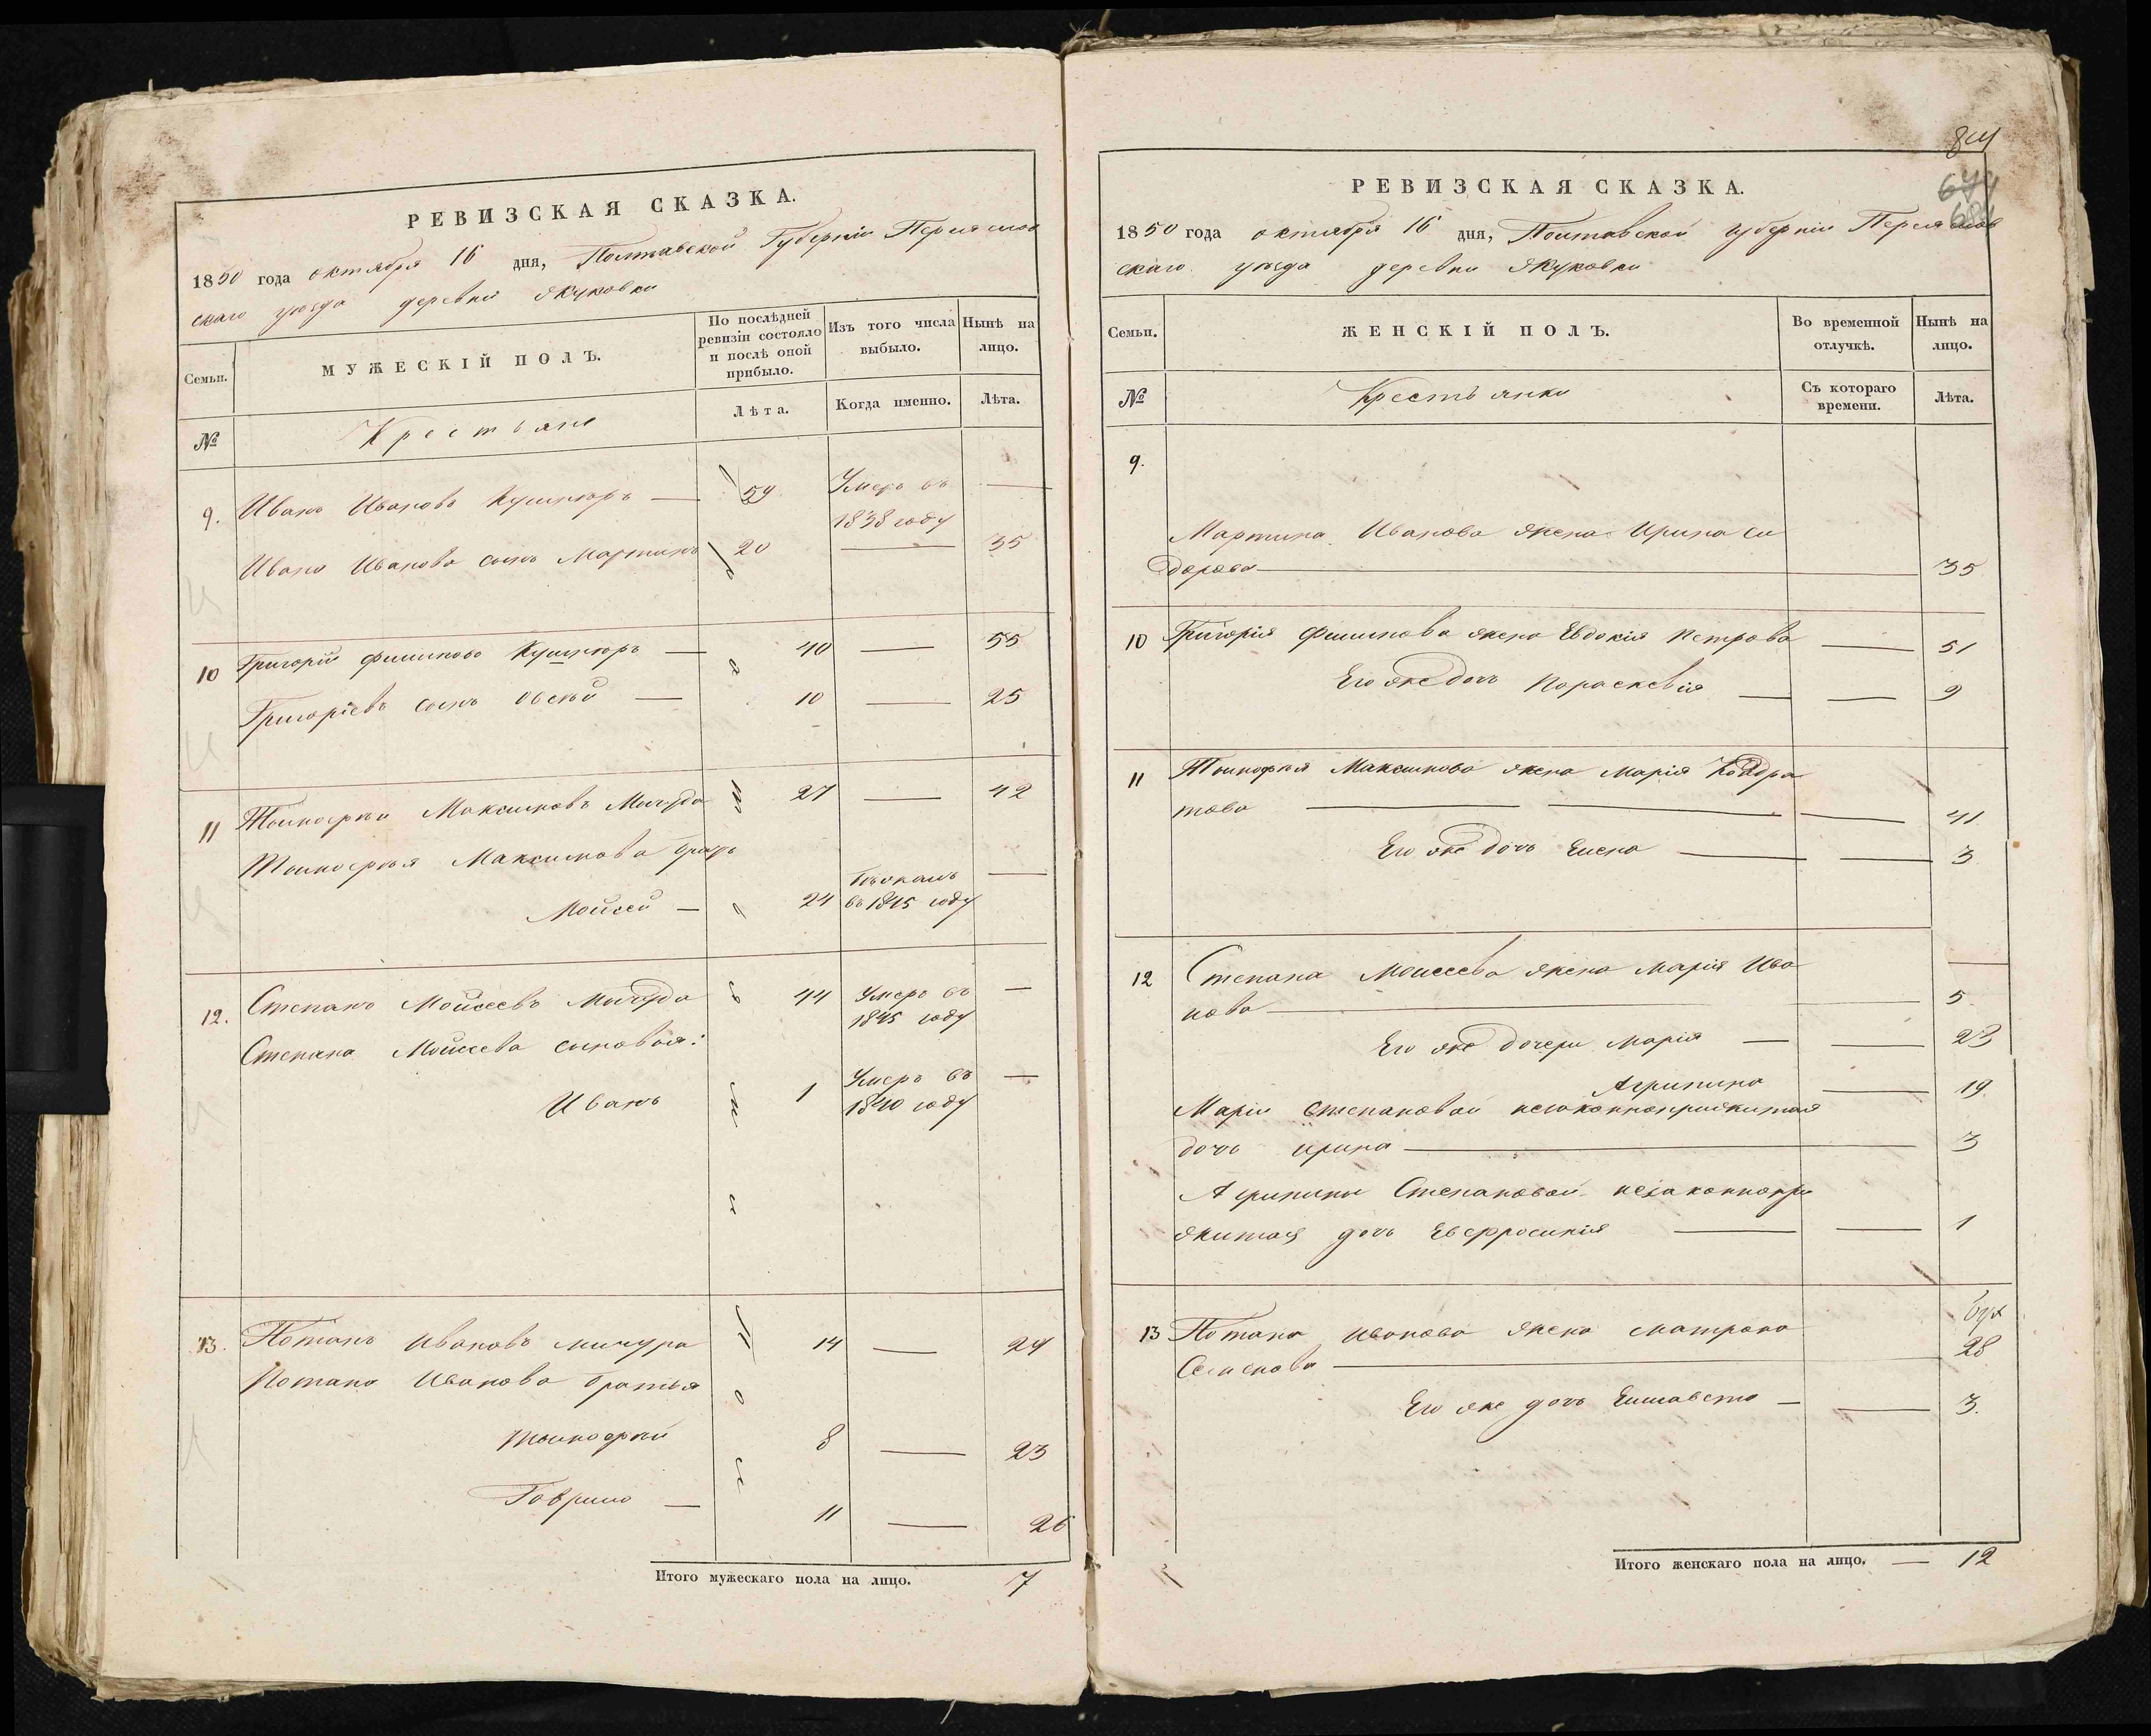 РЕВИЗСКАЯ СКАЗКА.
1850 года октября 16 дня, Полтавской Губерніи Переяслов
скаго уезда деревни Якуковки
Семьи.
МУЖЕСКІЙ ПОЛЪ.
По послѣдней ревизіи состояло и послѣ оной прибыло.
Изъ того числа выбыло.
Нынѣ на лицо.
№
Крестьяне
Лѣта.
Когда именно.
Лѣта.
9. Иванъ Ивановъ Кушниръ — 59 Умеръ въ —
1838 году
Ивана Иванова сынъ Мартинъ 20 — 35
10 Григорій Филиповъ Кушниръ — 40 — 55
Григоріевъ сынъ Овсѣй — 10 — 25
11 Тимофѣй Максимовъ Мичуда 27 — 42
Тимофѣя Максимова братъ
Мойсей — 24 въ 1845 году —
12. Степанъ Мойсеевъ Мичуда 44 Умеръ въ —
1845 году
Степана Мойсеева сыновья:
Иванъ 1 Умеръ въ —
1840 году
13. Потапъ Ивановъ Мичура 14 — 29
Потапа Иванова братья
Тимофѣй 8 — 23
Гаврило — 11 — 26
Итого мужескаго пола на лицо. 7
РЕВИЗСКАЯ СКАЗКА.
1850 года октября 16 дня, Полтавской губерніи Переяслов
скаго уезда деревни Якуковки
Семьи.
ЖЕНСКІЙ ПОЛЪ.
Во временной отлучкѣ.
Нынѣ на лицо.
№
Крестьянки
Съ котораго времени.
Лѣта.
9.
Мартина Иванова жена Ирина Си
дорова — 35
10 Григорія Филипова жена Евдокія Петрова — 51
Его же дочь Параскевія — — 9
11 Тимофѣя Максимова жена Марія Кодра
това — — — 41
Его же дочь Елена — — 3
12 Степана Моисеева жена Марія Ива
нова — — 5
Его же дочери Марія — — 23
Агрипина — 19
Маріи Степановой незаконноприжитая
дочь Ирина — 3
Агрипины Степановой незаконнопри
житая дочь Евфросинія — — 1
13 Потапа Иванова жена Матрона
Семенова — 28
Его же дочь Елисавета — — 3.
Итого женскаго пола на лицо. — 12